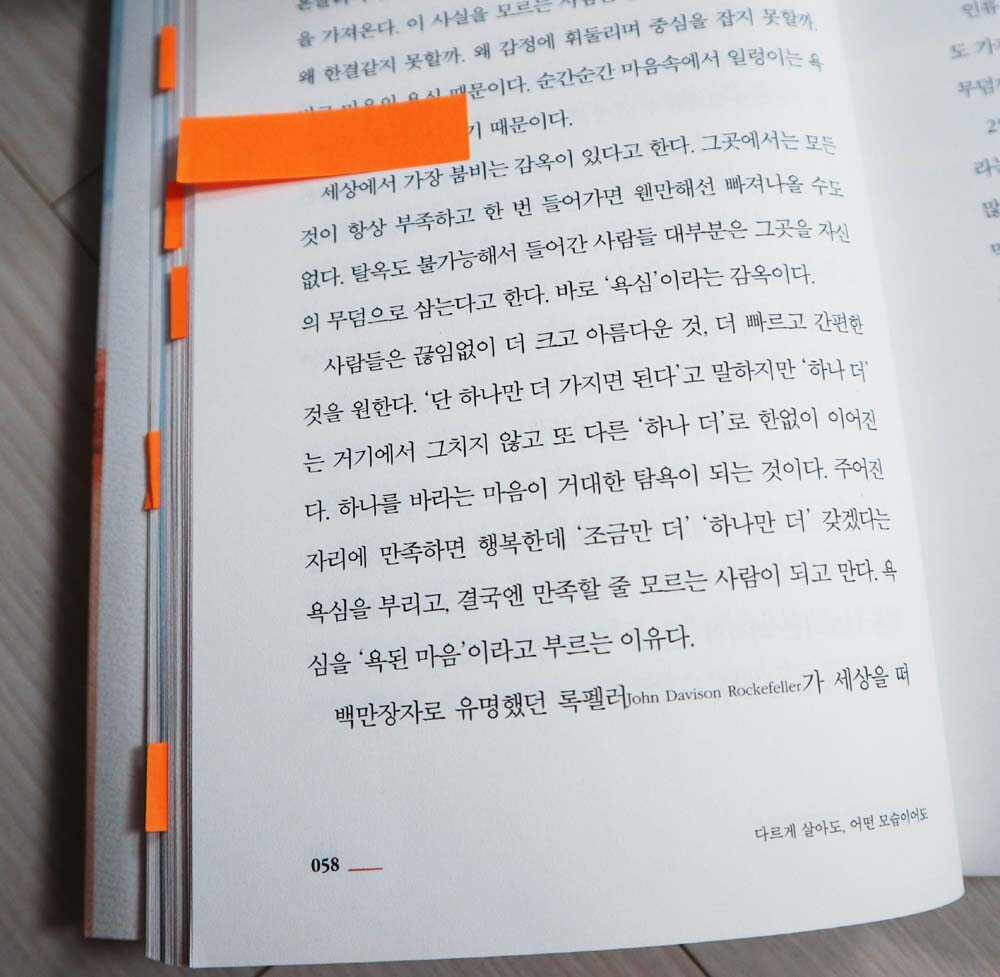 을 가져온다. 이 사실을 모르는
왜 한결같지 못할까. 왜 감정에 휘둘리며 중심을 잡지 못할까.
때문이다. 순간순간 마음속에서 일렁이는 욕
기 때문이다.
세상에서 가장 붐비는 감옥이 있다고 한다. 그곳에서는 모든
것이 항상 부족하고 한 번 들어가면 웬만해선 빠져나올 수도
없다. 탈옥도 불가능해서 들어간 사람들 대부분은 그곳을 자신
의 무덤으로 삼는다고 한다. 바로 ‘욕심’이라는 감옥이다.
사람들은 끊임없이 더 크고 아름다운 것, 더 빠르고 간편한
것을 원한다. ‘단 하나만 더 가지면 된다’고 말하지만 ‘하나 더’
는 거기에서 그치지 않고 또 다른 ‘하나 더’로 한없이 이어진
다. 하나를 바라는 마음이 거대한 탐욕이 되는 것이다. 주어진
자리에 만족하면 행복한데 ‘조금만 더’ ‘하나만 더’ 갖겠다는
욕심을 부리고, 결국엔 만족할 줄 모르는 사람이 되고 만다. 욕
심을 ‘욕된 마음’이라고 부르는 이유다.
백만장자로 유명했던 록펠러John Davison Rockefeller가 세상을 떠
다르게 살아도, 어떤 모습이어도
058
인류
도 가
무덤
2
라
많